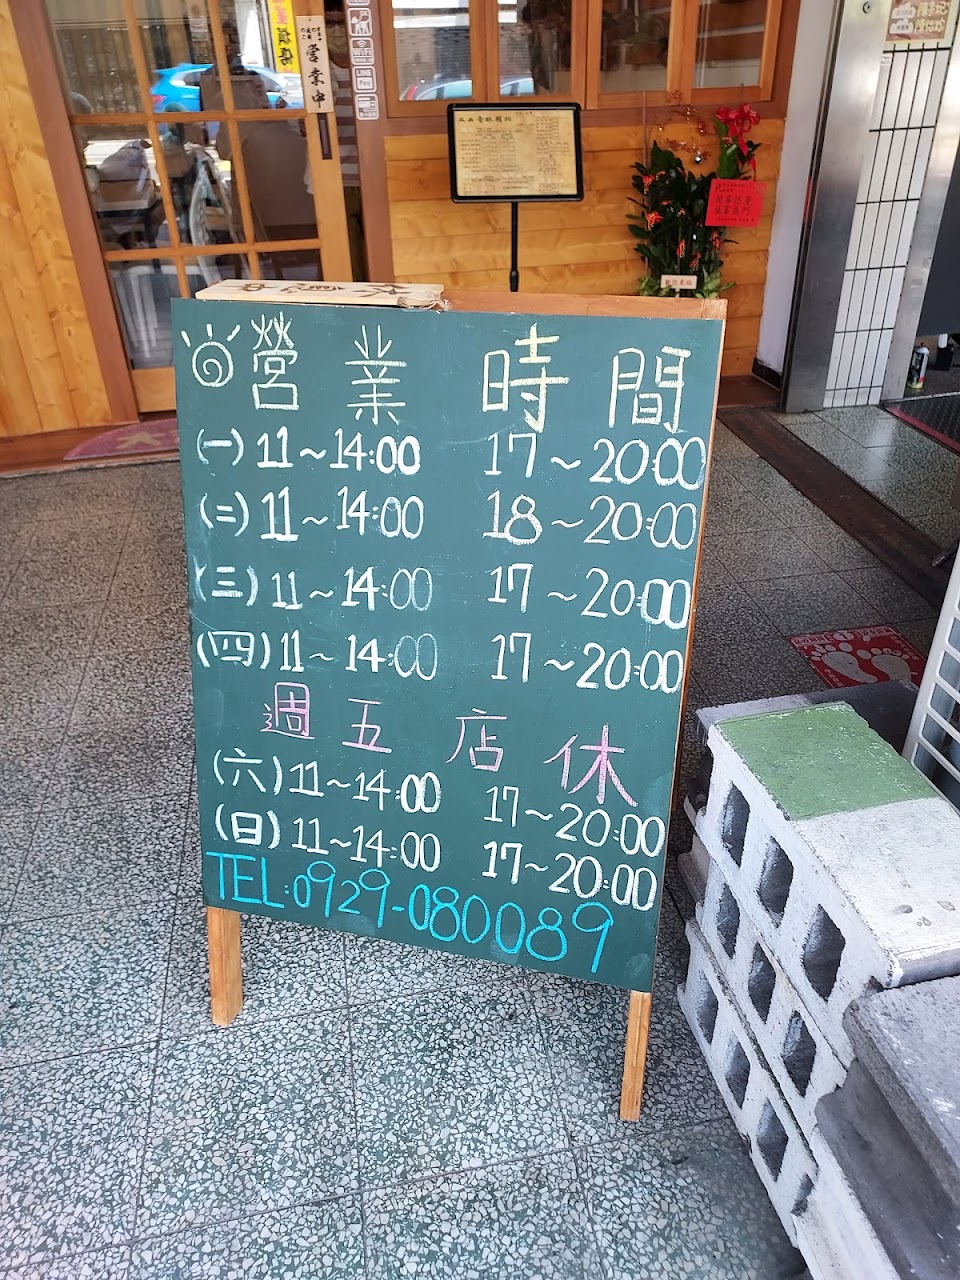 営業中
WiFi
LINE Pay
營業時間
(一) 11~14:00 17~20:00
(二) 11~14:00 18~20:00
(三) 11~14:00 17~20:00
(四) 11~14:00 17~20:00
週五店休
(六) 11~14:00 17~20:00
(日) 11~14:00 17~20:00
TEL:0929-080089